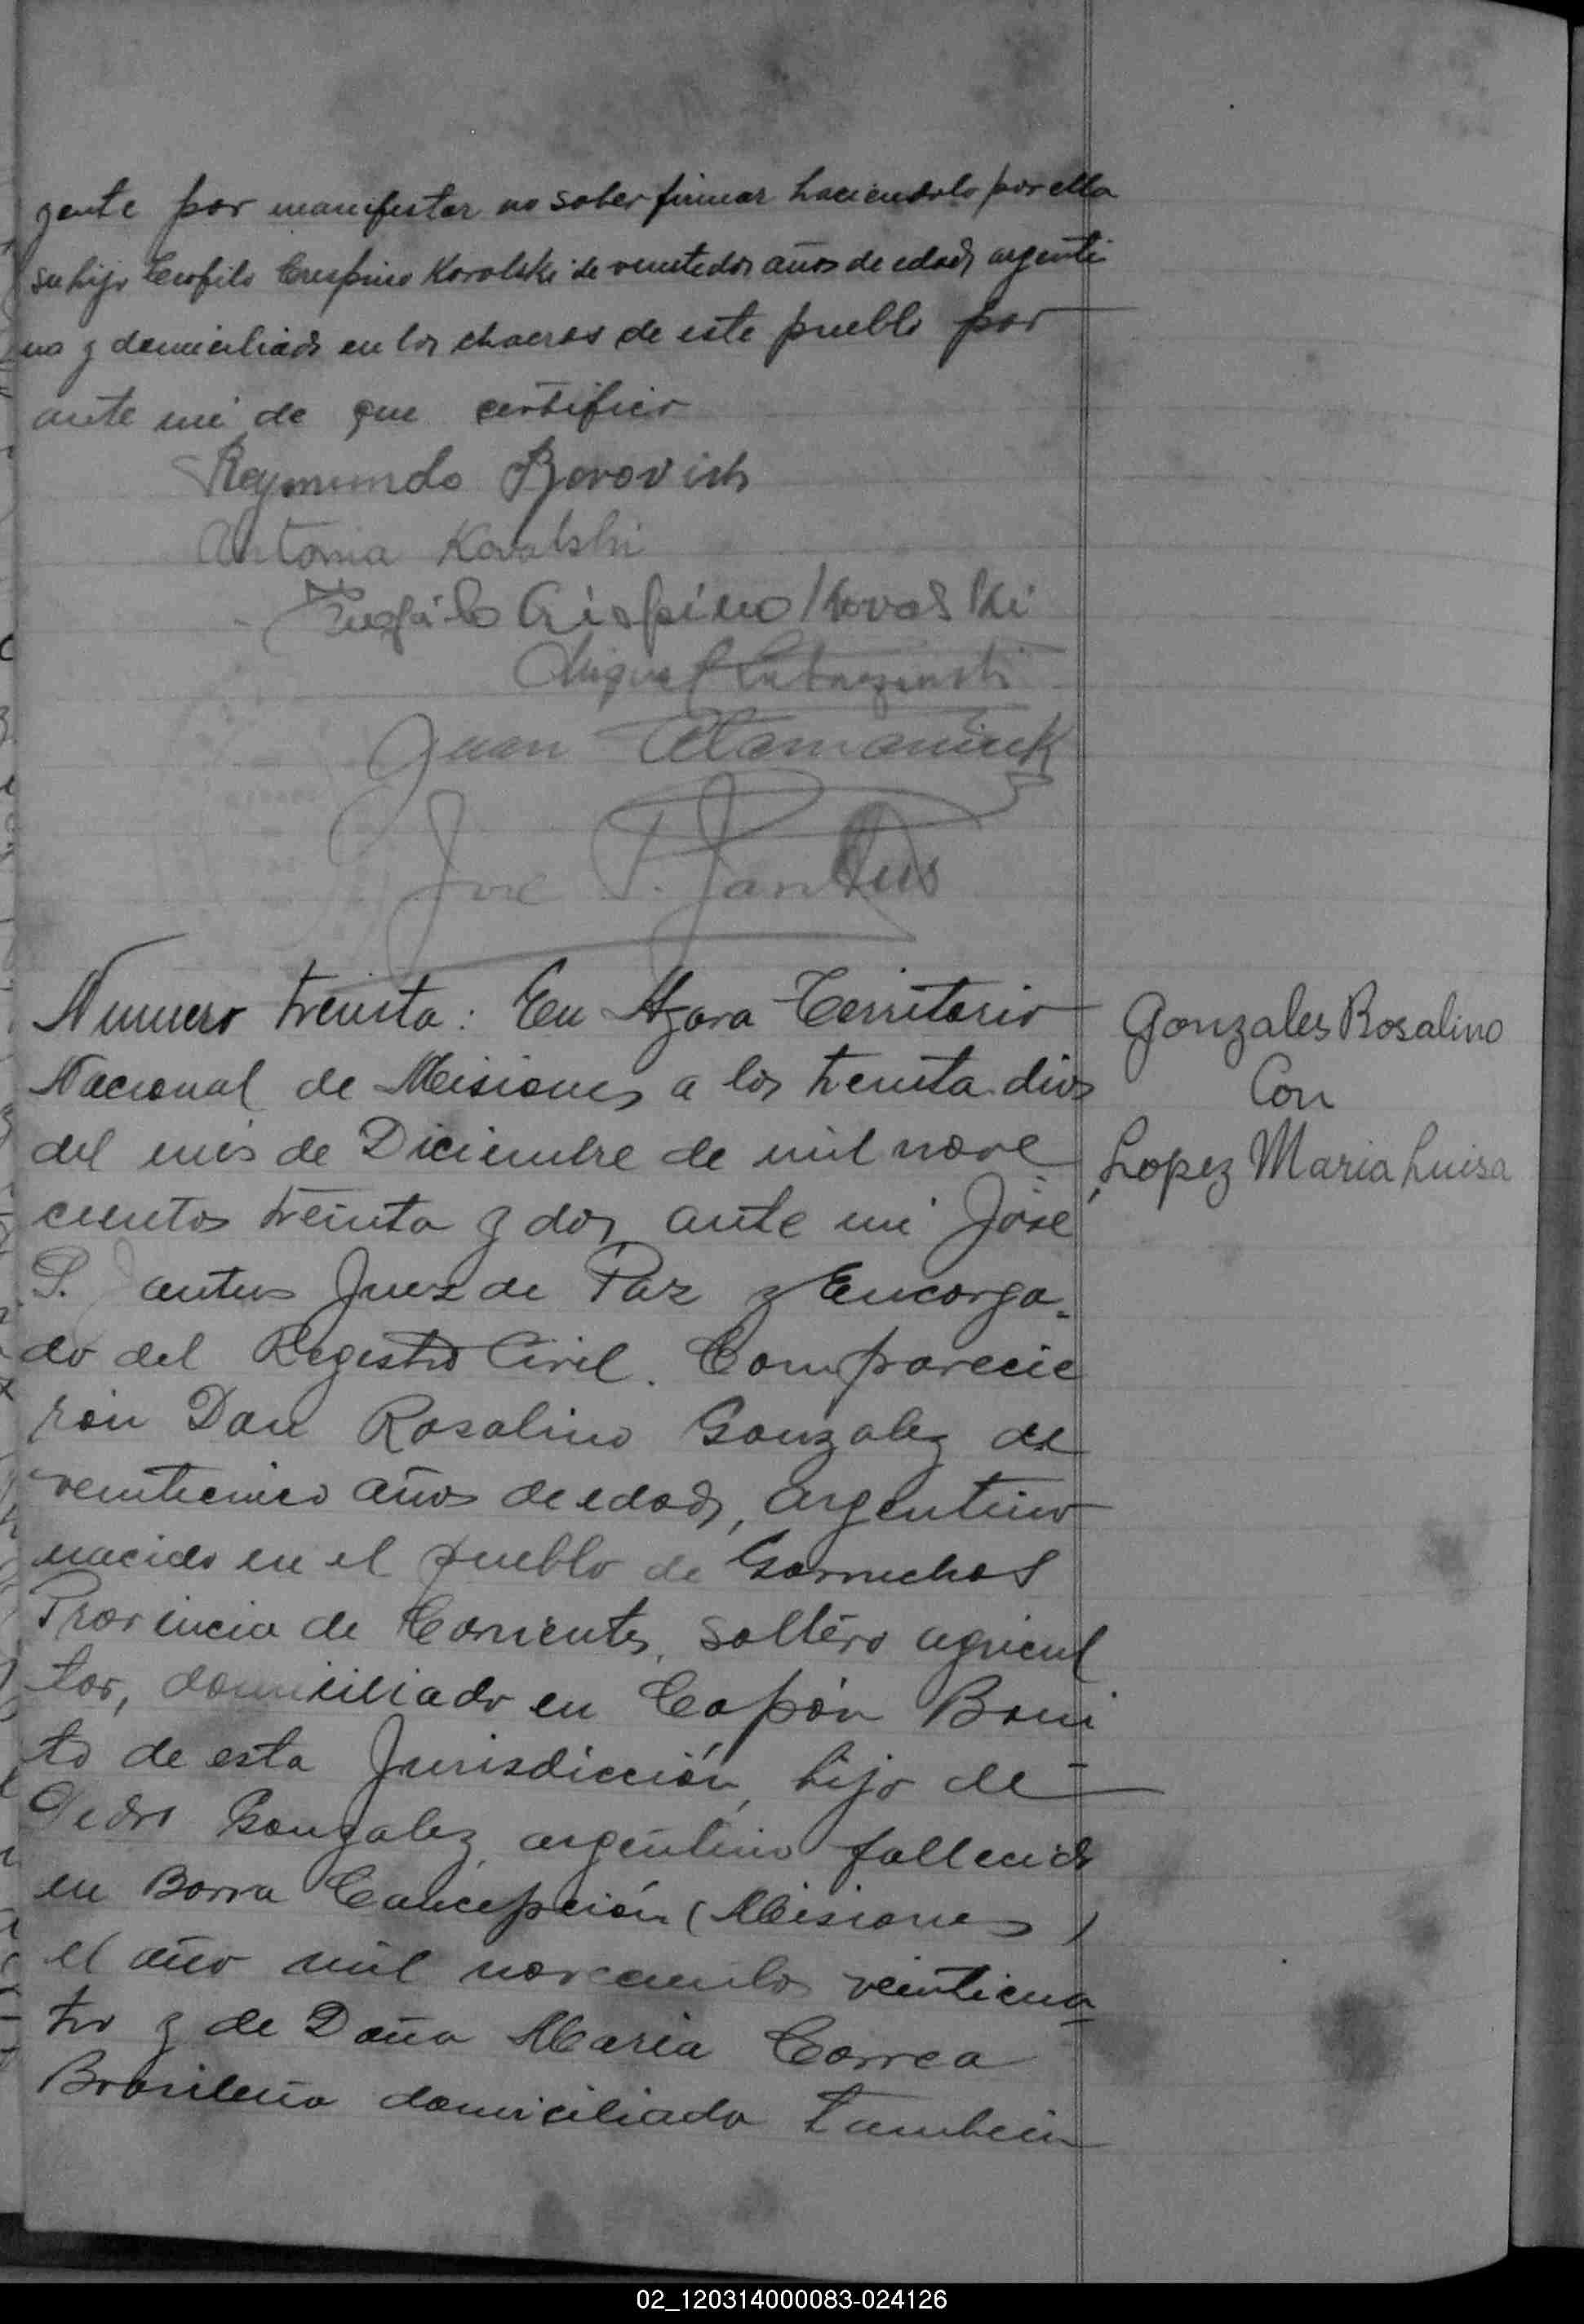 gente por manifestar no saber firmar haciendolo por ella
su hijo Teofilo Crespino Kovalski de veintedos años de edad, argenti
no y domiciliado en las chacras de este pueblo por
ante mi de que certifico
Reymundo Borovich
Antonia Kovalski
Crispino Kovalski
Miguel
Juan Atamaniuk
José P. Jantus
Numero treinta: En Azara Territorio
Nacional de Misiones a los treinta dias
del mes de Diciembre de mil nove
cientos treinta y dos, ante mi José
P. Jantus Juez de Paz y Encarga-
do del Registro Civil. Comparecie
ron Don Rosalino Gonzalez de
veinticinco años de edad, argentino
nacido en el pueblo de Garruchos
Provincia de Corrientes, soltero agricul
tor, domiciliado en Capón Boni
to de esta Jurisdicción, hijo de
Pedro Gonzalez, argentino fallecido
en Barra Concepción (Misiones)
el año mil novecientos veinticua
tro y de Doña Maria Correa
Brasileña domiciliada tambien
Gonzales Rosalino
Con
Lopez Maria Luisa
02_120314000083-024126